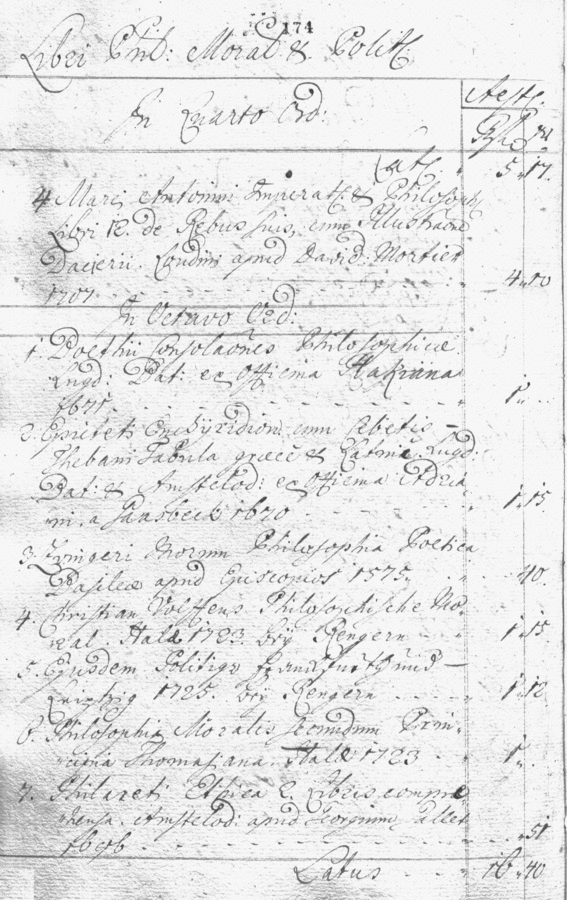 174
Libri Phil: Moral: & Polit:
Aest:
In Quarto Ord:
Lat: 5 17.
4. Marci Antonini Imperat: & Philosophi
Libri 12. de Rebus suis, cum Illustraone
Dacierii. Londini apud David: Mortier
1707. 4 80
In Octavo Ord:
1. Boethii Consolaones Philosophicae.
Lugd: Bat: ex Officina Hakiana
1671. 1
2. Epicteti Enchyridion cum Cebetis
Thebani Tabula graece & Latine. Lugd:
Bat: & Amstelod: ex Officina Adria
ni a Gaasbeck 1670 1 15
3. Zvingeri Morum Philosophia Poetica
Basileae apud Episcopios 1575. 40.
4. Christian Wolffens Philosophische Mo-
ral. Halae 1723. bey Rengern 1 15
5. Ejusdem Politiqv Franckfurth und
Leipzig 1725. bey Rengern 1 12
6. Philosophia Moralis secundum Prin-
cipia Thomasiana. Halae 1723 1
7. Philareti Ethica 2. Libris compre
hensa. Amstelod: apud Georgium Gallet
1696 51
Latus 16 40